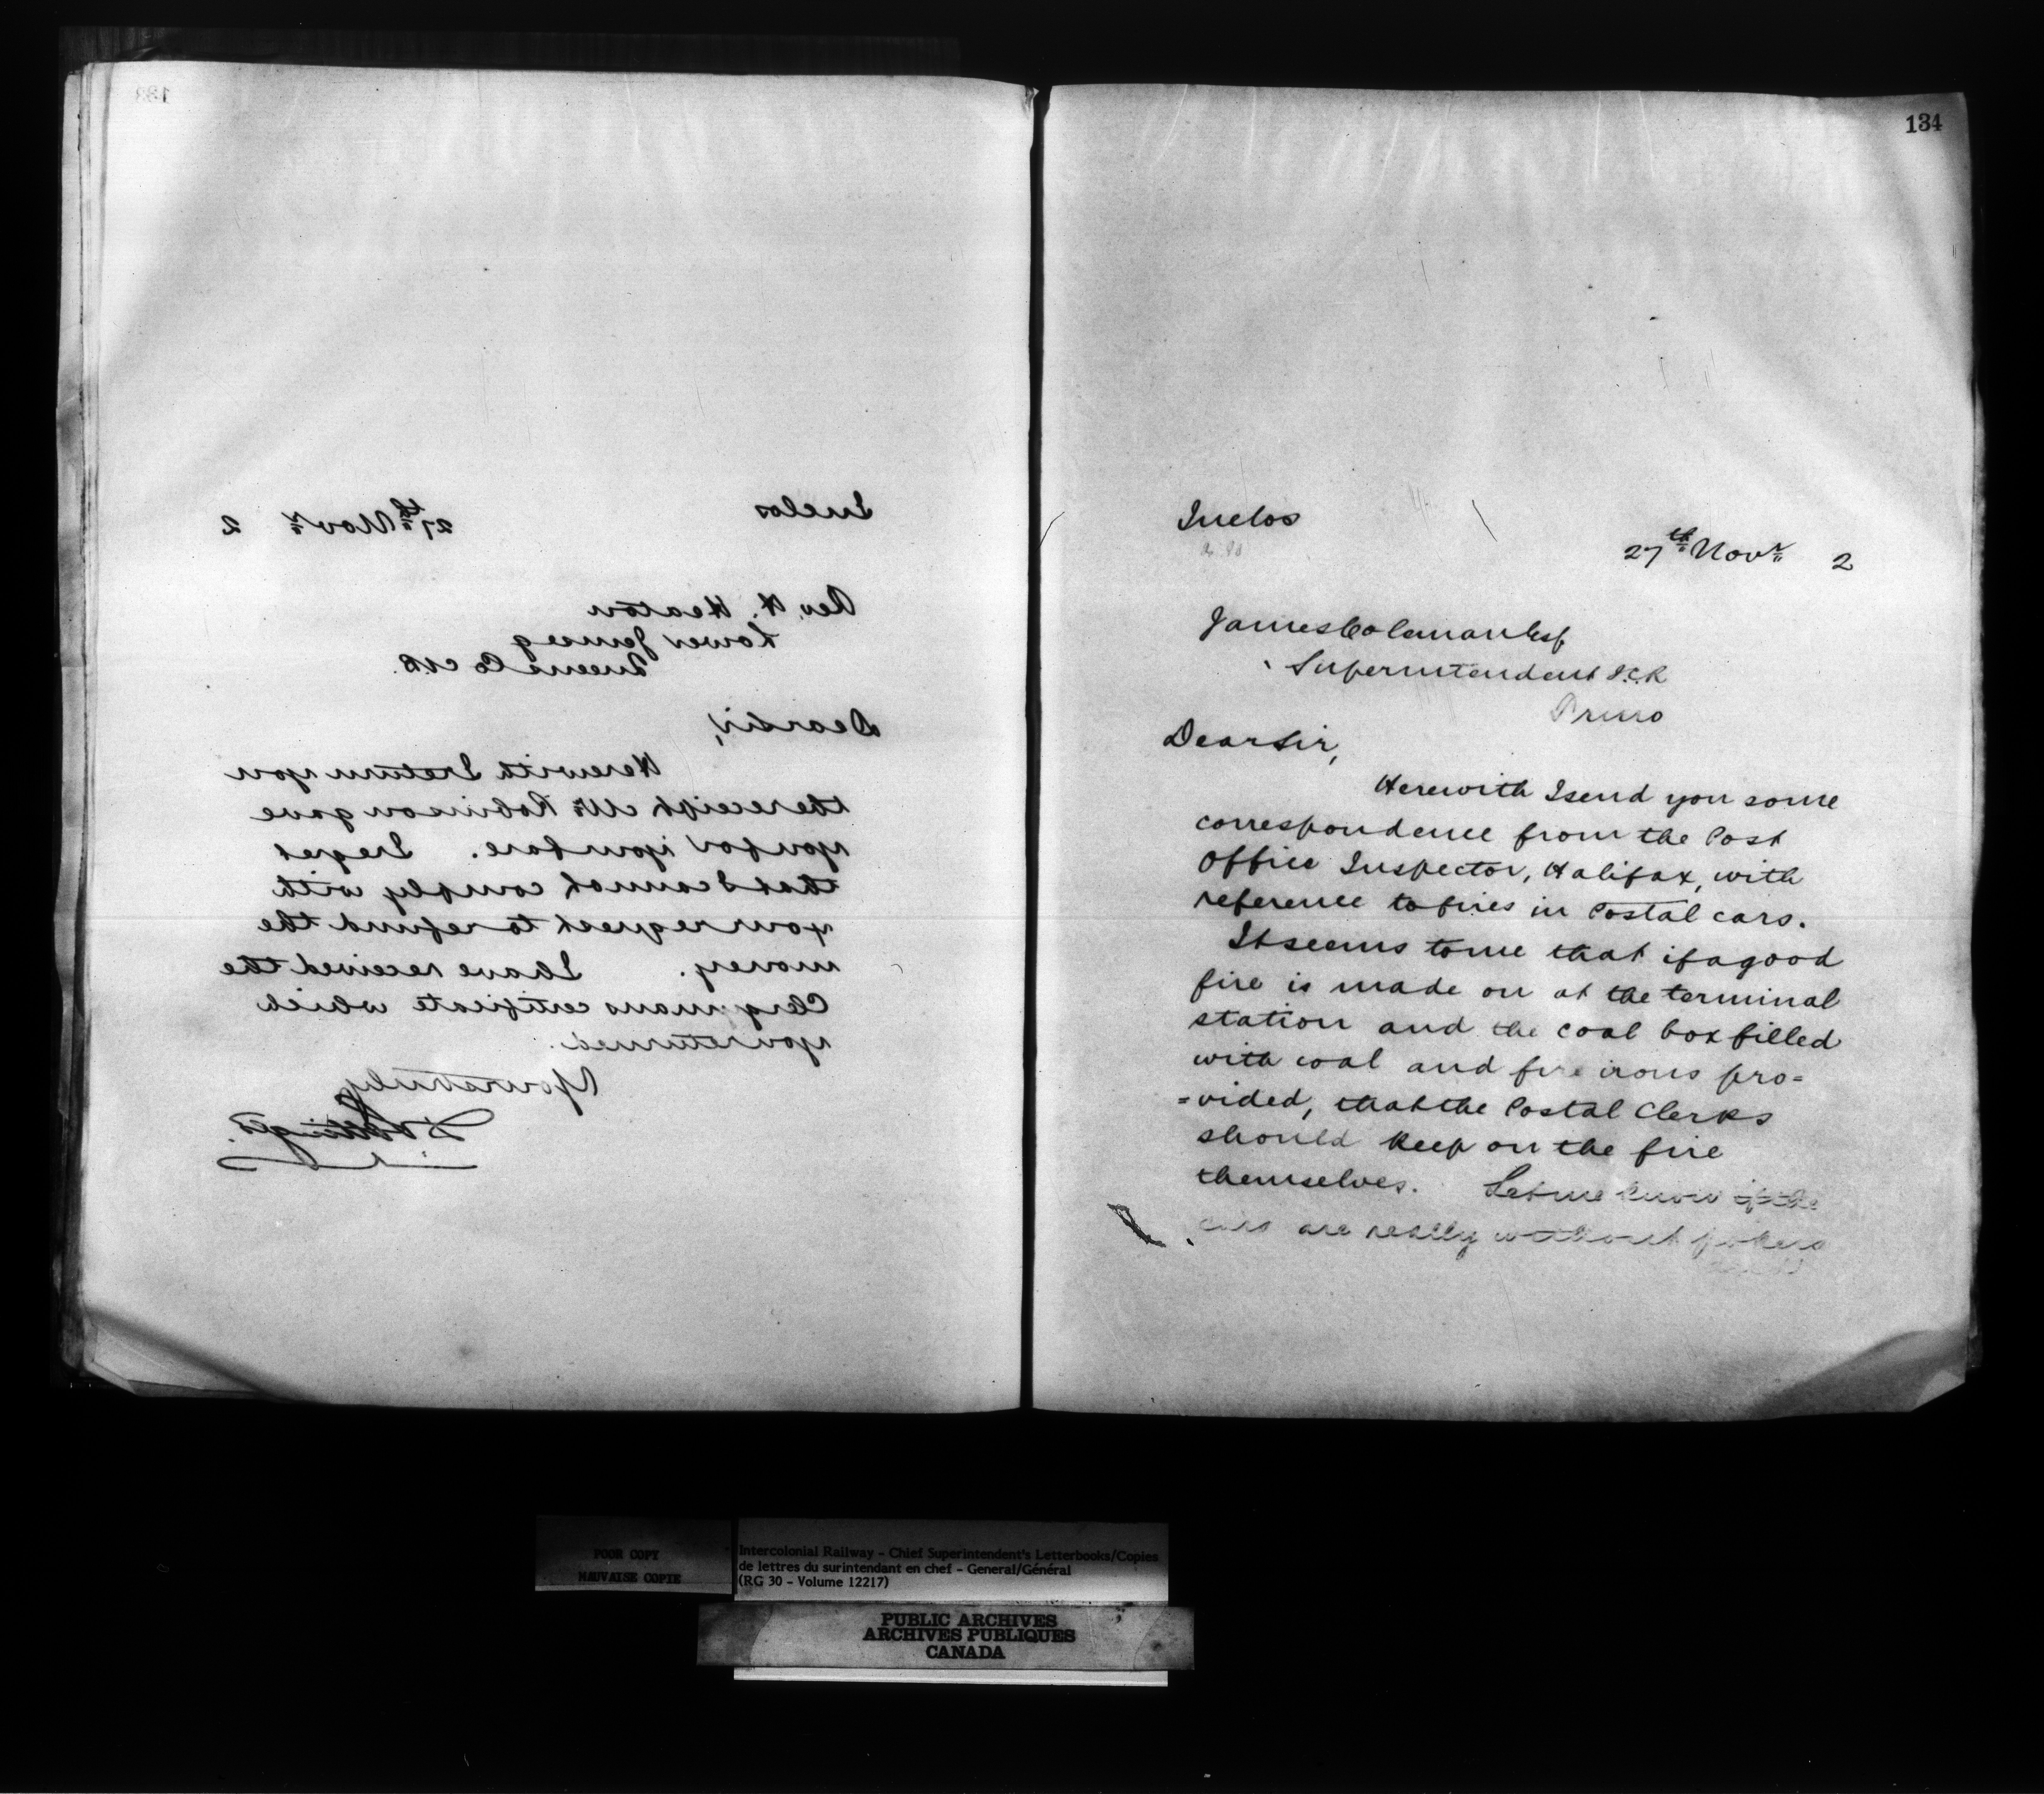 133
Inclos
27th Novr 2
Rev. H. Heaton
Lower Jemseg
Queens Co N.B.
Dear Sir,
Herewith I return you
the receipt Mr Robinson gave
you for your fare. I regret
that I cannot comply with
your request to refund the
money. I have received the
Clergymans certificate which
you returned.
Yours truly
D Pottinger
134
Inclos
27th Novr 2
James Coleman Esq
Superintendent I.C.R
Truro
Dear Sir,
Herewith I send you some
correspondence from the Post
Office Inspector, Halifax, with
reference to fires in Postal cars.
It seems to me that if a good
fire is made on at the terminal
station and the coal box filled
with coal and fire irons pro=
=vided, that the Postal Clerks
should keep on the fire
themselves. Let me know if the
cars are really without pokers
POOR COPY
MAUVAISE COPIE
Intercolonial Railway - Chief Superintendent's Letterbooks/Copies
de lettres du surintendant en chef - General/Général
(RG 30 - Volume 12217)
PUBLIC ARCHIVES
ARCHIVES PUBLIQUES
CANADA